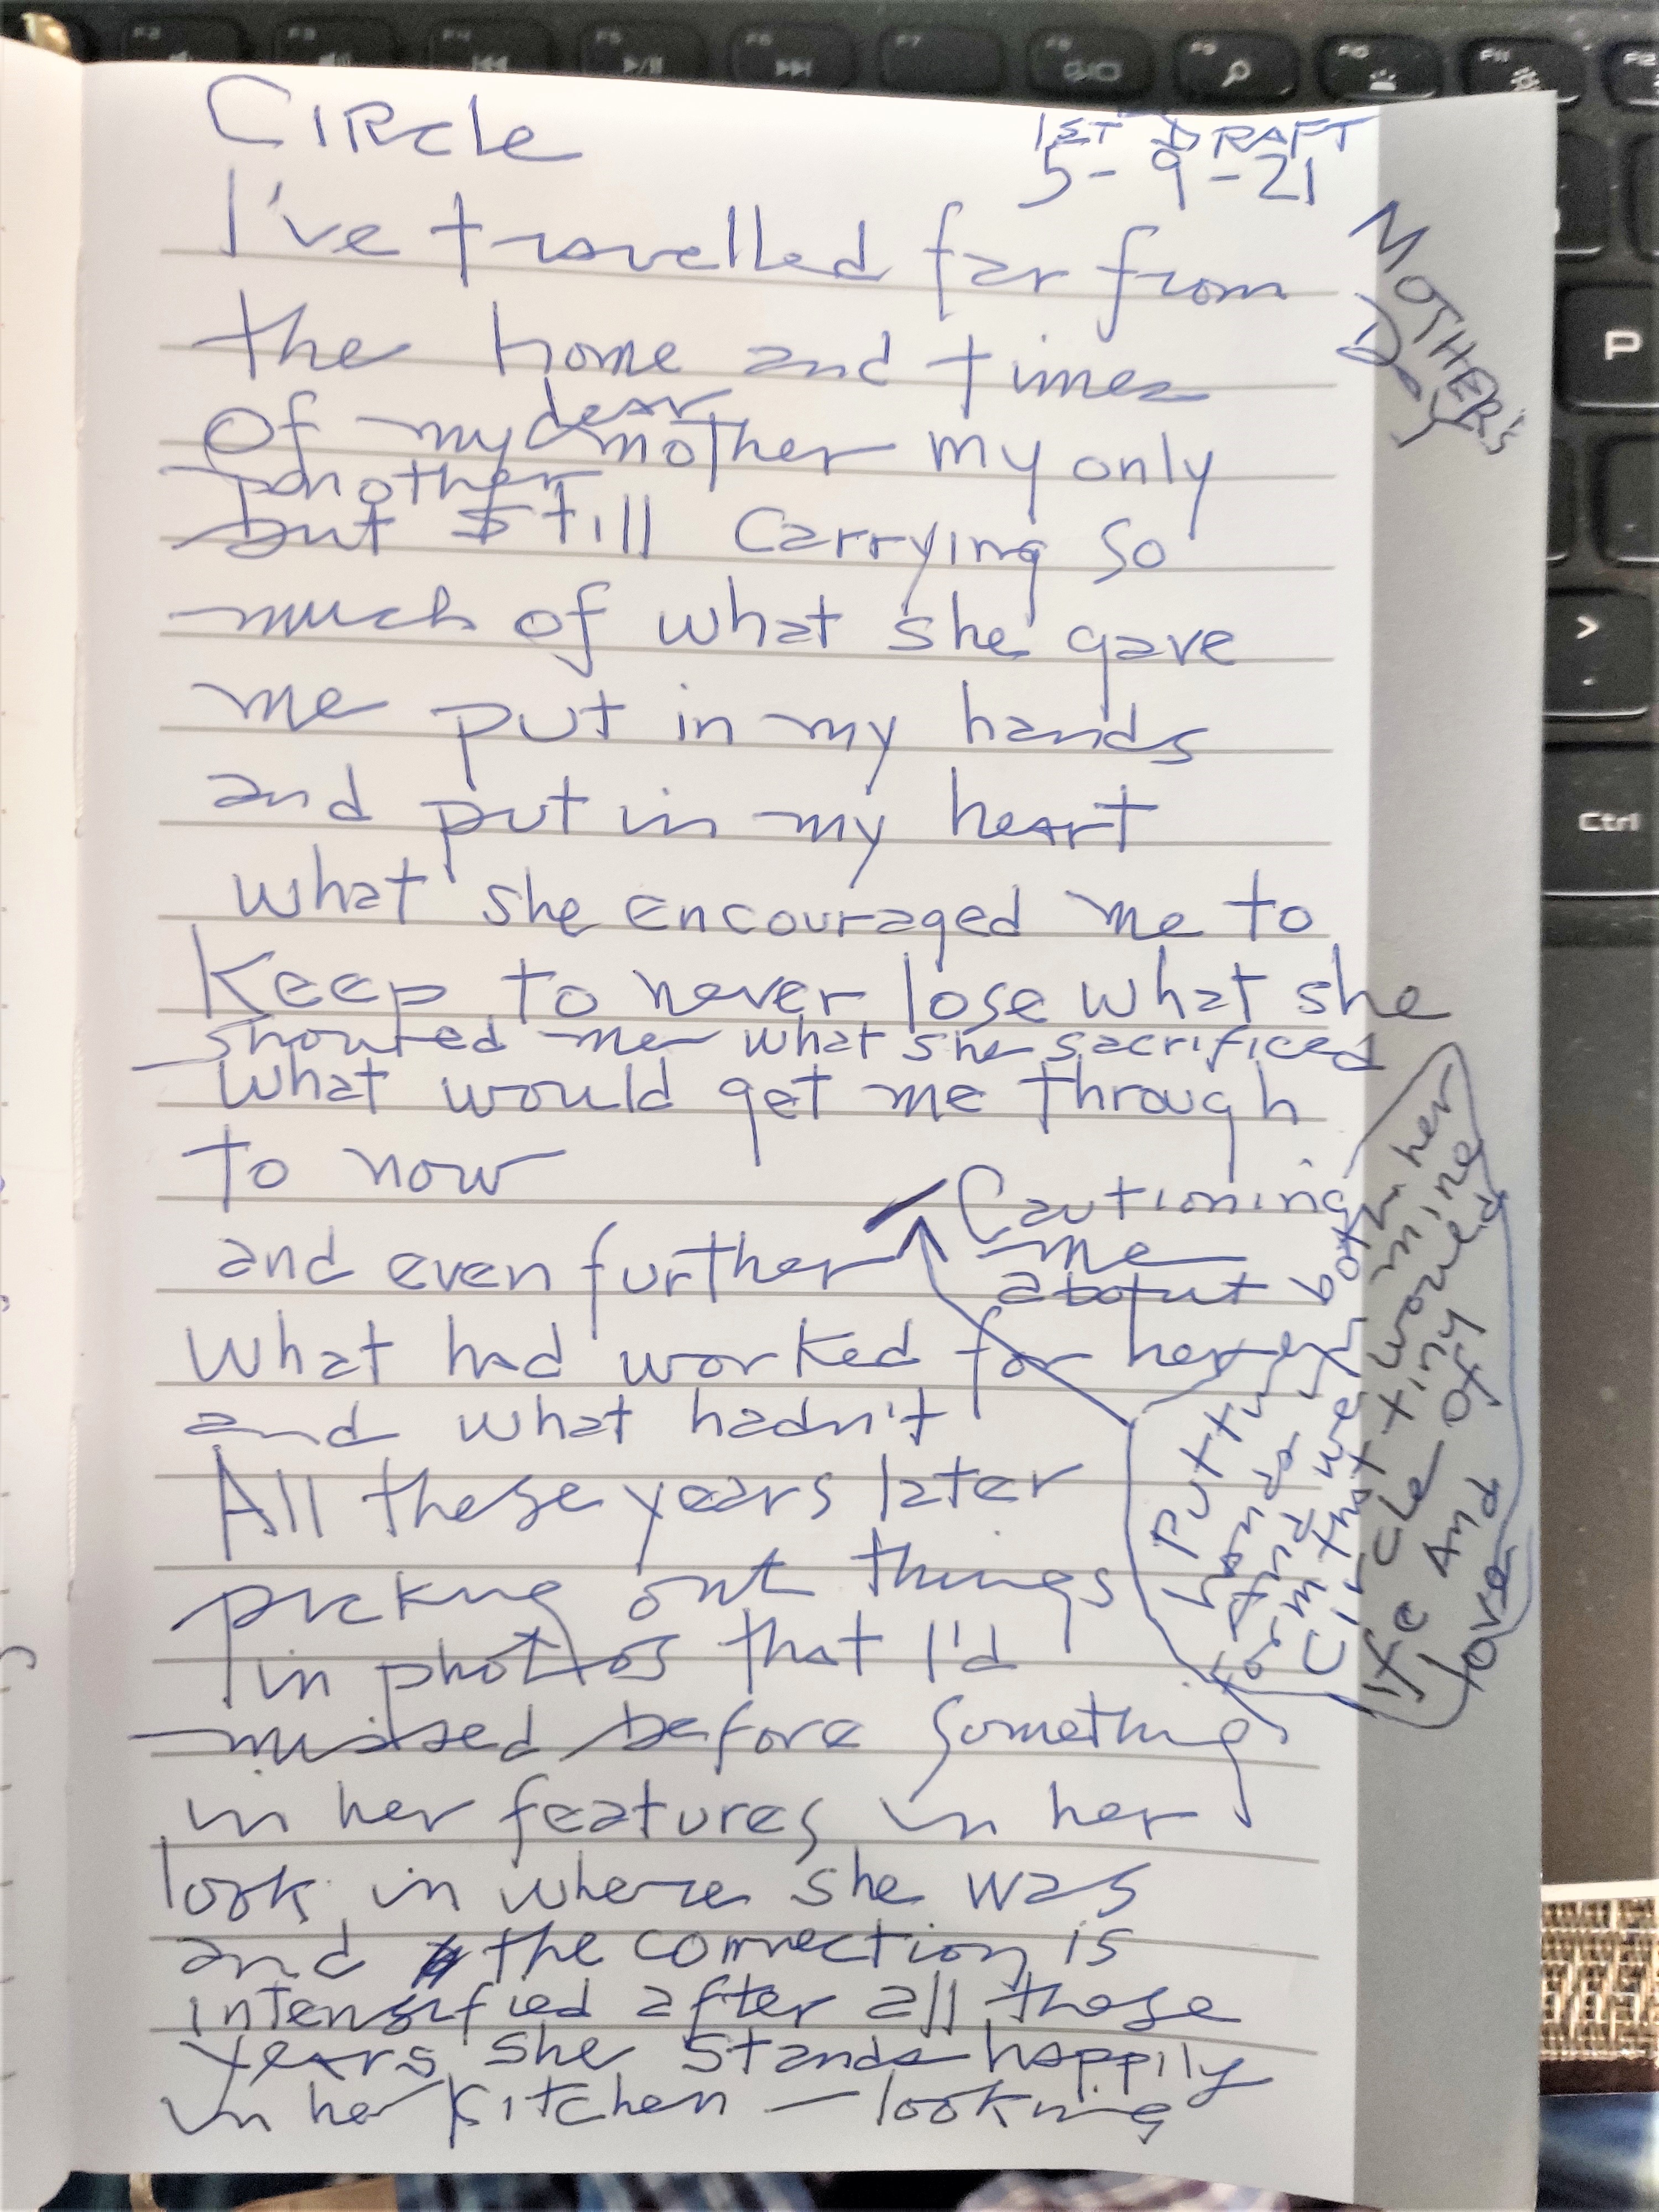 Circle
1ST DRAFT
5-9-21
MOTHER'S
DAY
I've travelled far from
the home and times
of my dear mother my only
mother
but still carrying so
much of what she gave
me put in my hands
and put in my heart
what she encouraged me to
keep to never lose what she
showed me what she sacrificed
what would get me through
to now
and even further Cautioning
me
about
what had worked for her
and what hadn't
All these years later
picking out things
in photos that I'd
missed before something
in her features in her
look in where she was
and the connection is
intensified after all these
years she stands happily
in her kitchen — looking
both her
mine
would
tiny
circle of
life and
love
F2
F3
F4
F5
F6
F7
F8
F9
F10
F11
F12
P
>
.
Ctrl